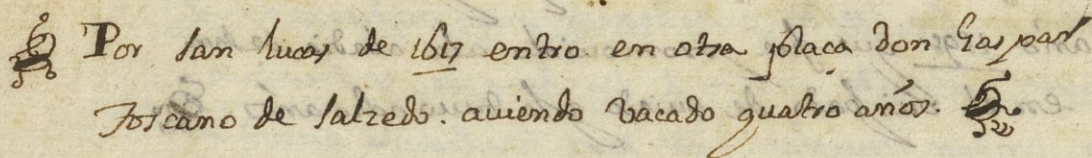 Por san lucas de 1617 entro en otra plaça don Gaspar
Toscano de salzedo. auiendo vacado quatro años.